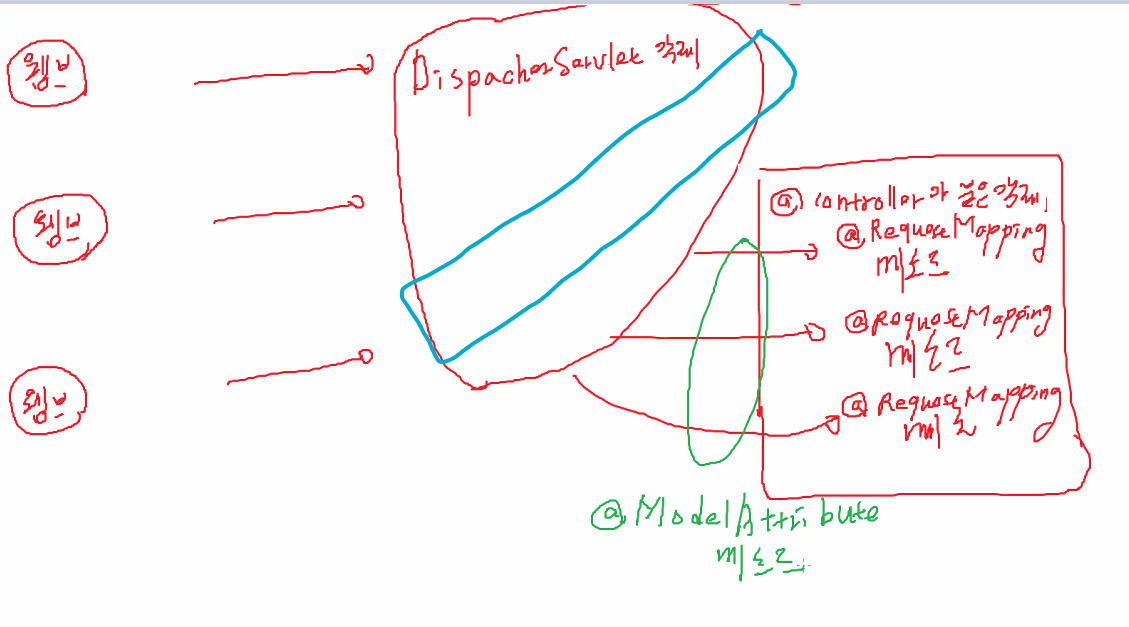 웹브
DispacherServlet 객체
웹브
@ controller가 붙은 객체
@ RequestMapping
메소드
@ RequestMapping
메소드
웹브
@ RequestMapping
메소드
@ ModelAttribute
메소드